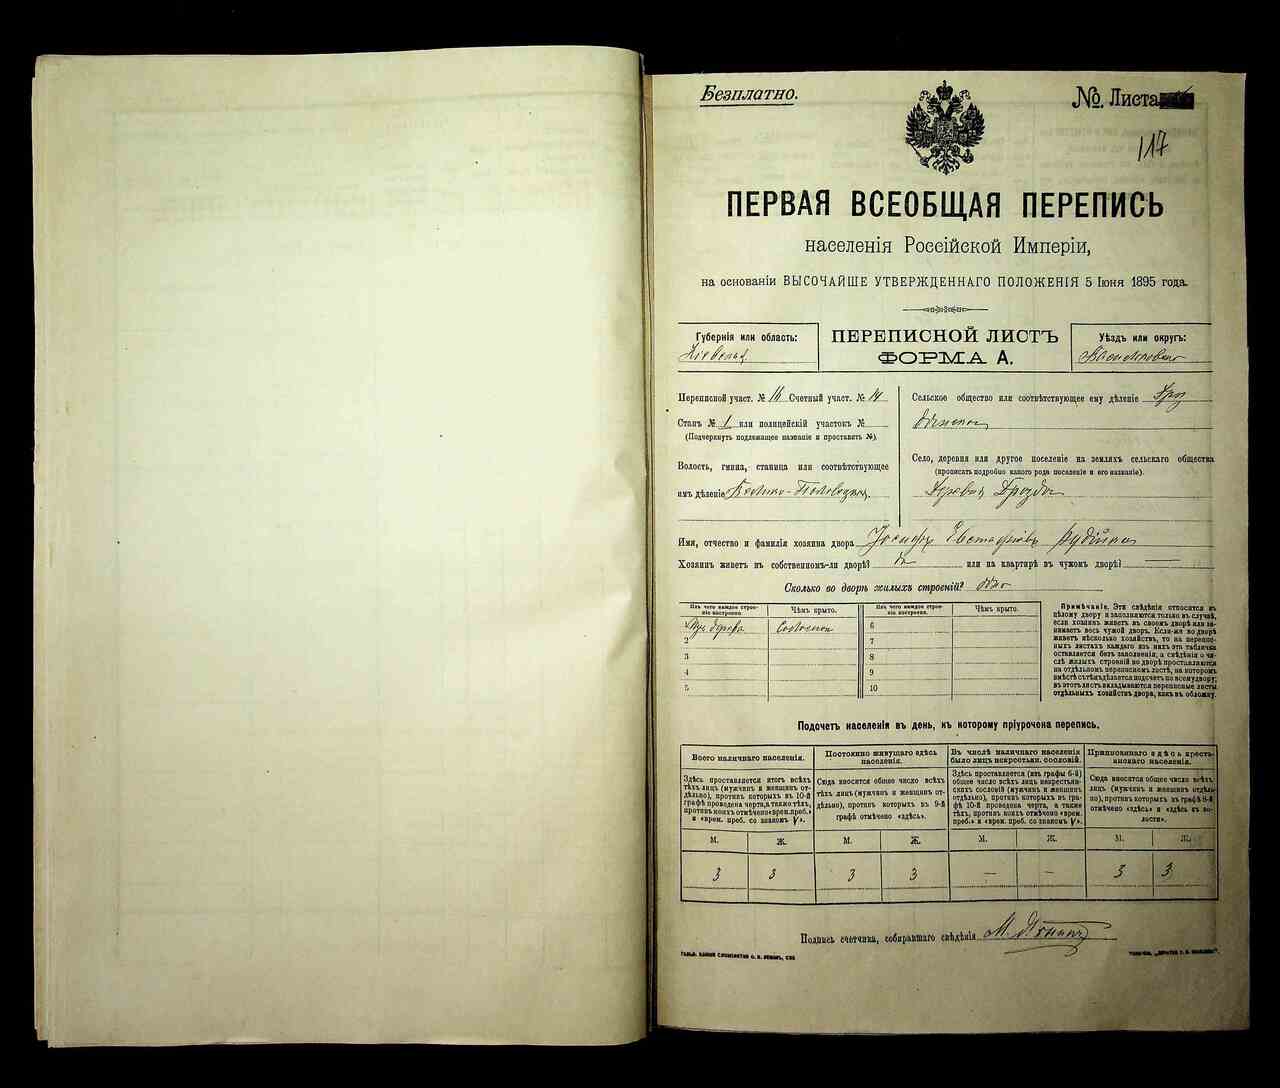 Безплатно.
№. Листа
117
ПЕРВАЯ ВСЕОБЩАЯ ПЕРЕПИСЬ
населенія Россійской Имперіи,
на основаніи ВЫСОЧАЙШЕ УТВЕРЖДЕННАГО ПОЛОЖЕНІЯ 5 Іюня 1895 года.
Губернія или область:
ПЕРЕПИСНОЙ ЛИСТЪ
ФОРМА А.
Уѣздъ или округъ:
Переписной участ. № 16 Счетный участ. № 14
Станъ № 1 или полицейскій участокъ №
(Подчеркнуть подлежащее названіе и проставить №).
Волость, гмина, станица или соотвѣтствующее
имъ дѣленіе Велико-Половецкая
Сельское общество или соотвѣтствующее ему дѣленіе
Село, деревня или другое поселеніе на земляхъ сельскаго общества
(прописать подробно какого рода поселеніе и его названіе).
Деревня Дрозды
Имя, отчество и фамилія хозяина двора Іосифъ Евстафіевъ
Хозяинъ живетъ въ собственномъ-ли дворѣ? да или на квартирѣ въ чужомъ дворѣ? —
Сколько во дворѣ жилыхъ строеній? одно
Изъ чего каждое строе-
ніе построено.
Чѣмъ крыто.
Изъ чего каждое строе-
ніе построено.
Чѣмъ крыто.
Изъ дерева Соломою
2
3
4
5
6
7
8
9
10
Примѣчаніе. Эти свѣдѣнія относятся къ
цѣлому двору и заполняются только въ случаѣ,
если хозяинъ живетъ въ своемъ дворѣ или за-
нимаетъ весь чужой дворъ. Если-же во дворѣ
живетъ нѣсколько хозяйствъ, то на перепис-
ныхъ листахъ каждаго изъ нихъ эта табличка
оставляется безъ заполненія; а свѣдѣнія о чи-
слѣ жилыхъ строеній во дворѣ проставляются
на отдѣльномъ переписномъ листѣ, на которомъ
вмѣстѣ съ тѣмъ дѣлается подсчетъ по всему двору;
въ этотъ листъ вкладываются переписные листы
отдѣльныхъ хозяйствъ двора, какъ въ обложку.
Подсчетъ населенія въ день, къ которому пріурочена перепись.
Всего наличнаго населенія.
Здѣсь проставляется итогъ всѣхъ
тѣхъ лицъ (мужчинъ и женщинъ от-
дѣльно), противъ которыхъ въ 10-й
графѣ проведена черта, а также тѣхъ,
противъ коихъ отмѣчено «врем. преб.»
и «врем. преб. со знакомъ V».
Постоянно живущаго здѣсь
населенія.
Сюда вносится общее число всѣхъ
тѣхъ лицъ (мужчинъ и женщинъ от-
дѣльно), противъ которыхъ въ 9-й
графѣ отмѣчено «здѣсь».
Въ числѣ наличнаго населенія
было лицъ некрестьян. сословій.
Здѣсь проставляется (изъ графы 6-й)
общее число всѣхъ лицъ некрестьян-
скихъ сословій (мужчинъ и женщинъ
отдѣльно), противъ которыхъ въ гра-
фѣ 10-й проведена черта, а также
тѣхъ, противъ коихъ отмѣчено «врем.
преб.» и «врем. преб. со знакомъ V».
Приписаннаго здѣсь кресть-
янскаго населенія.
Сюда вносится общее число всѣхъ
лицъ (мужчинъ и женщинъ отдѣль-
но), противъ которыхъ въ графѣ 8-й
отмѣчено «здѣсь» и «здѣсь въ во-
лости».
М. Ж. М. Ж. М. Ж. М. Ж.
3 3 3 3 — — 3 3
Подпись счетчика, собиравшаго свѣдѣнія